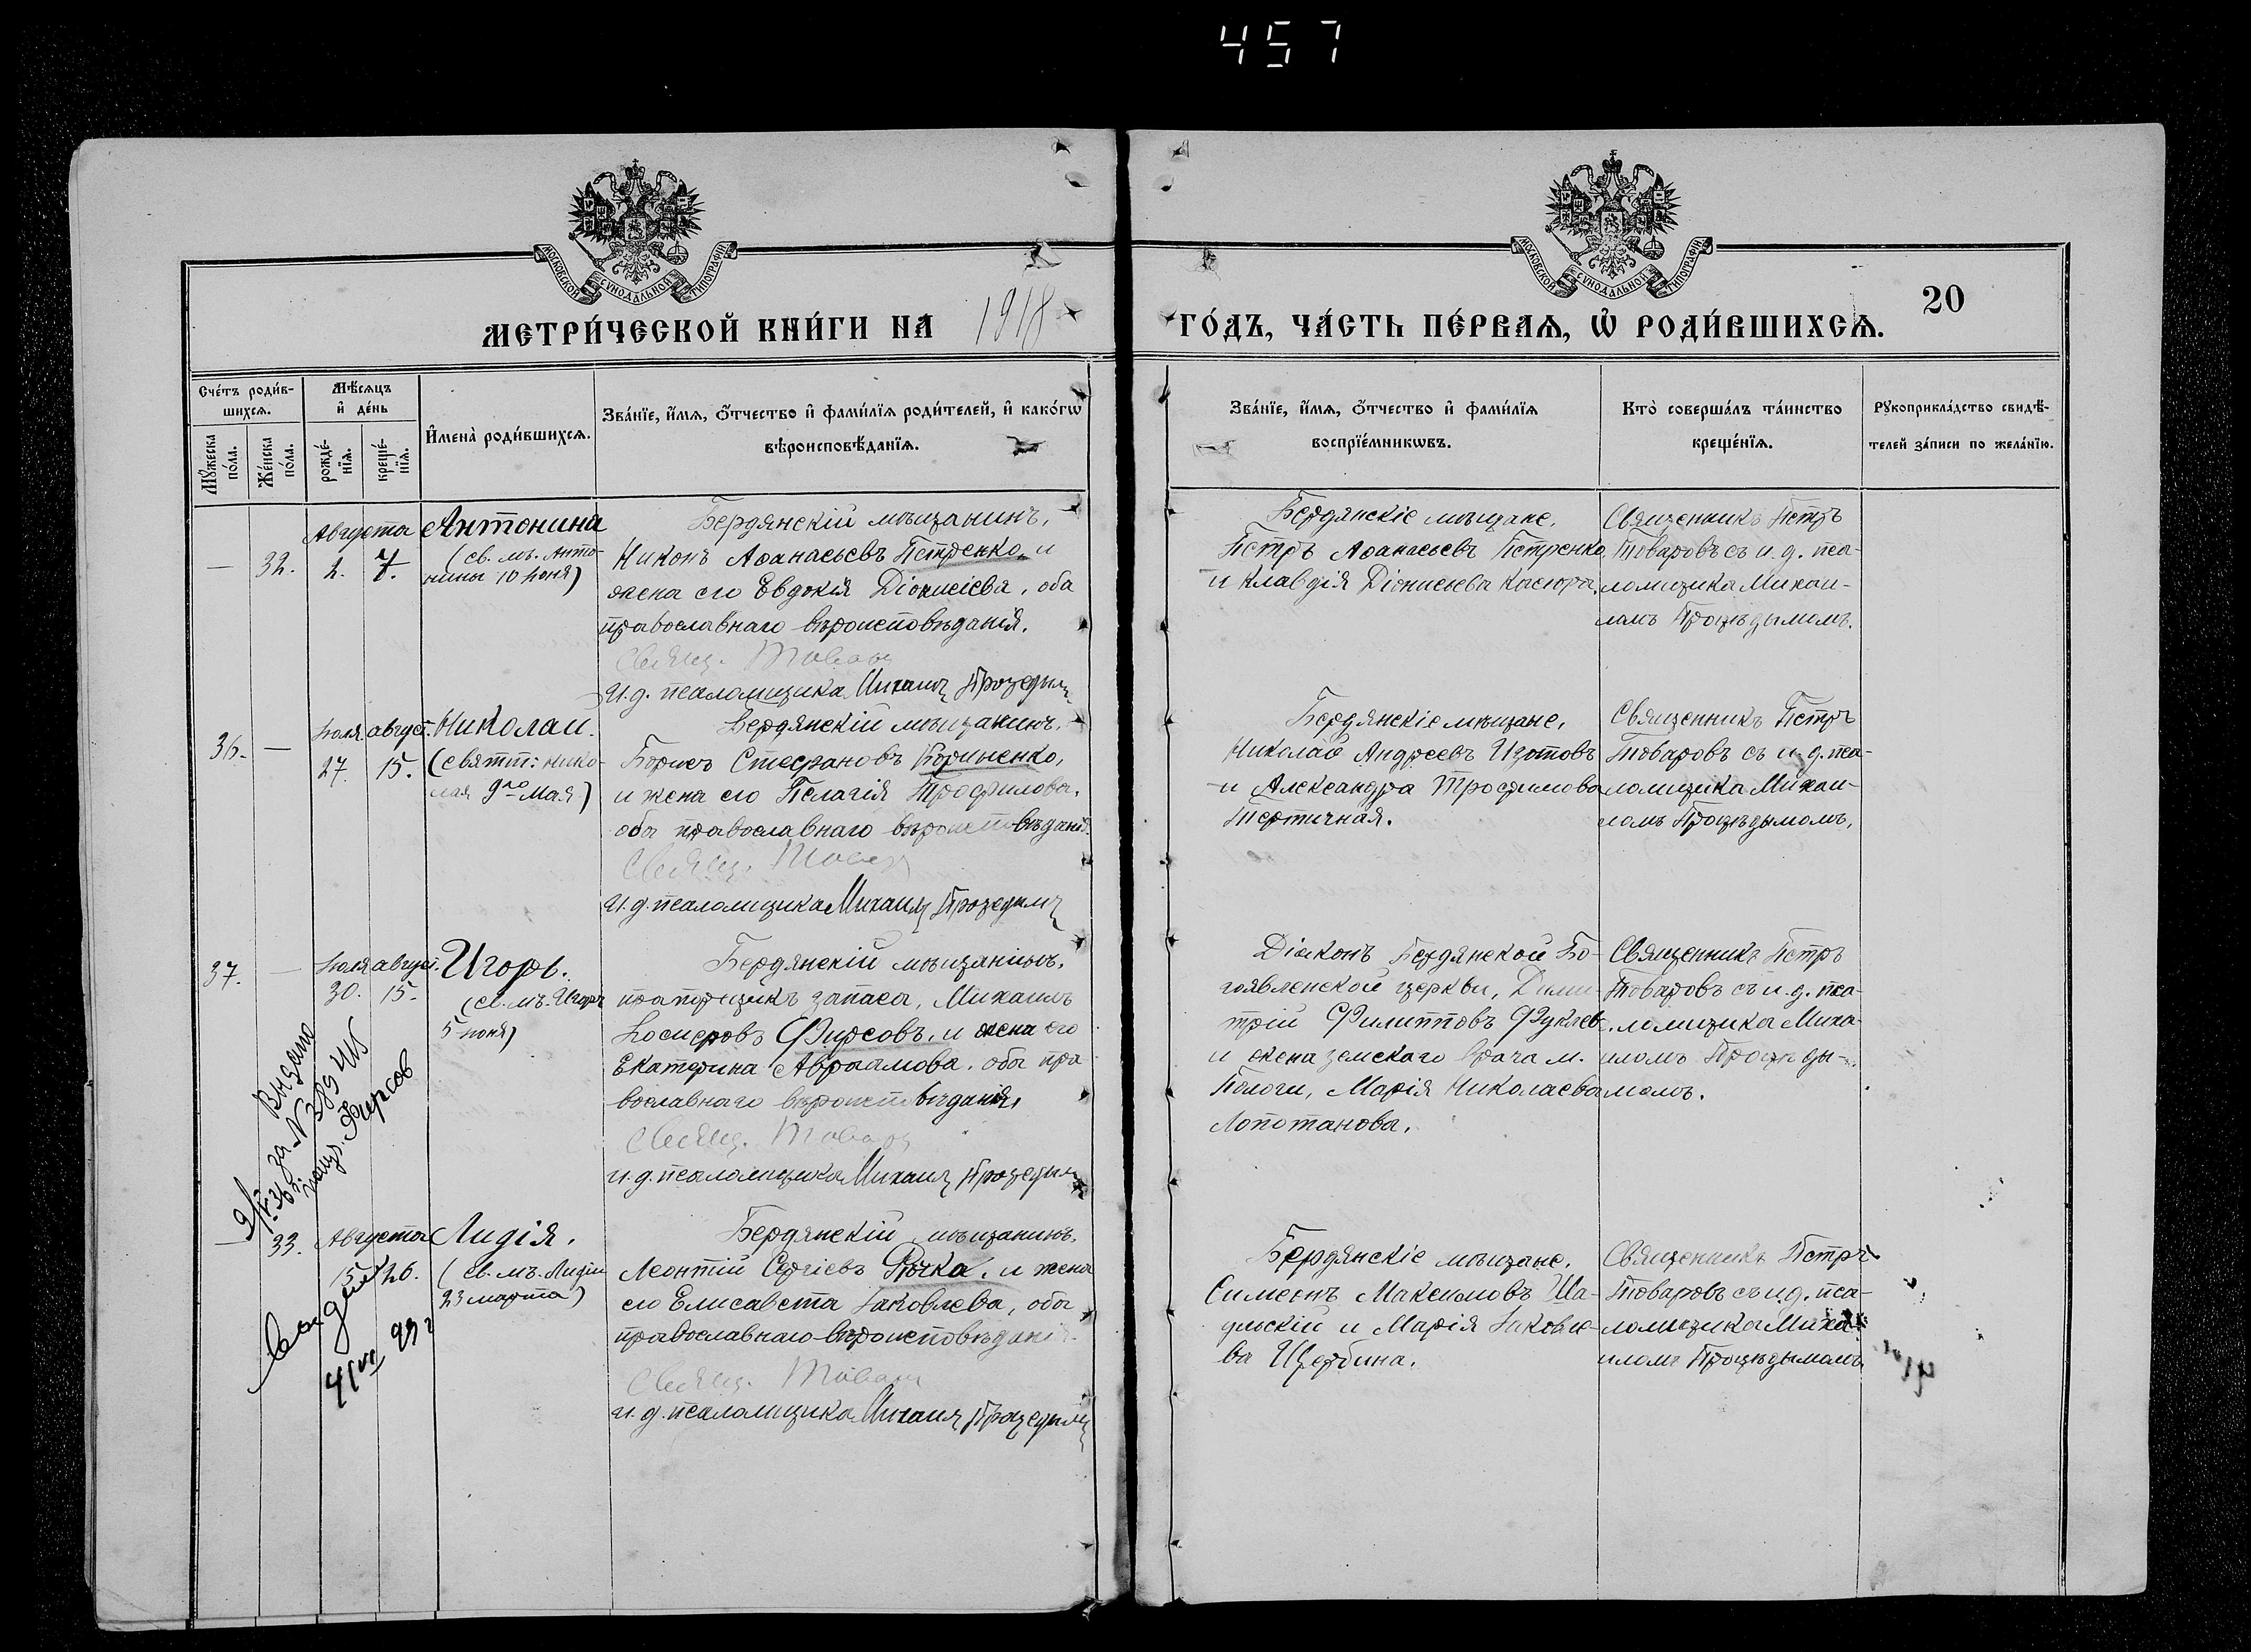 457
МОСКОВСКОЙ СУНОДАЛЬНОЙ ТИПОГРАФІИ
МОСКОВСКОЙ СУНОДАЛЬНОЙ ТИПОГРАФІИ
МЕТРИ́ЧЕСКОЙ КНИ́ГИ НА 1918
ГО́ДЪ, ЧА́СТЬ ПЕ́РВАѦ, Ѡ҆ РОДИ́ВШИХСѦ.
20
Сче́тъ роди́в-
шихсѧ.
Мꙋ́жеска
по́ла.
Же́нска
по́ла.
Мѣ́сѧцъ
и҆ де́нь
рожде́-
нїѧ.
креще́-
нїѧ.
И҆мена̀ роди́вшихсѧ.
Зва́нїе, и҆́мѧ, ѻ҆́тчество и҆ фами́лїѧ роди́телей, и҆ како́гѡ
вѣроисповѣ́данїѧ.
Зва́нїе, и҆́мѧ, ѻ҆́тчество и҆ фами́лїѧ
воспрїе́мникѡвъ.
Кто̀ соверша́лъ та́инство
креще́нїѧ.
Рꙋкоприкла́дство свидѣ́-
телей за́писи по жела́нїю.
— 32.
Августа
2. 7.
Антонина
(св. мъ. Анто-
нины 10 Іюня)
Бердянскій мѣщанинъ,
Никонъ Аѳанасьевъ Петренко и
жена его Евдокія Діонисіева, оба
православнаго вѣроисповѣданія.
Свящ. Товаров
И. д. псаломщика Михаил Процедым
Бердянскіе мѣщане,
Петръ Аѳанасьевъ Петренко
и Клавдія Діонисьева Касюра.
Священникъ Петръ
Товаровъ съ и. д. пса-
ломщика Михаи-
ломъ Процѣдымомъ.
36. —
Іюля август.
27. 15.
Николай.
(святит: Нико-
лая 9го мая)
Бердянскій мѣщанинъ,
Борисъ Стефановъ
и жена его Пелагія Трофимова,
оба православнаго вѣроисповѣданія
Свящ. Товаров
И. д. псаломщика Михаил Процедым
Бердянскіе мѣщане,
Николай Андреевъ Изотовъ
и Александра Трофимова
Тертичная.
Священникъ Петръ
Товаровъ съ и. д. пса-
ломщика Михаи-
ломъ Процѣдымомъ.
37. —
Іюля август.
30. 15.
Игорь.
(св. мъ. Игоря
5 Іюня)
Бердянскій мѣщанинъ,
прапорщикъ запаса, Михаилъ
Фирсовъ, и жена его
Екатерина Авраамова, оба пра
вославнаго вѣроисповѣданія,
Свящ. Товаров
и. д. псаломщика Михаил Процедым
Діаконъ Бердянской Бо-
гоявленской церкви, Дими-
трій Филипповъ
и жена земскаго врача м.
Пологи, Марія Николаева
Лопотанова.
Священникъ Петръ
Товаровъ съ и. д. пса-
ломщика Миха-
иломъ Процѣды-
момъ.
Выдана
за N
Фирсов
— 33.
Августа
15 26.
Лидія.
(св. мъ. Лидіи
23 марта)
Бердянскій мѣщанинъ,
Леонтій Сергіевъ Рѣчка, и жена
его Елисавета Іаковлева, оба
православнаго вѣроисповѣданія
Свящ. Товаров
и. д. псаломщика Михаил Процедым
Бердянскіе мѣщане,
Симеонъ Максимовъ Ша-
дльскій и Марія Іаковле-
ва Щербина.
Священникъ Петръ
Товаровъ съ и д. пса-
ломщика Миха-
иломъ Процѣдымомъ